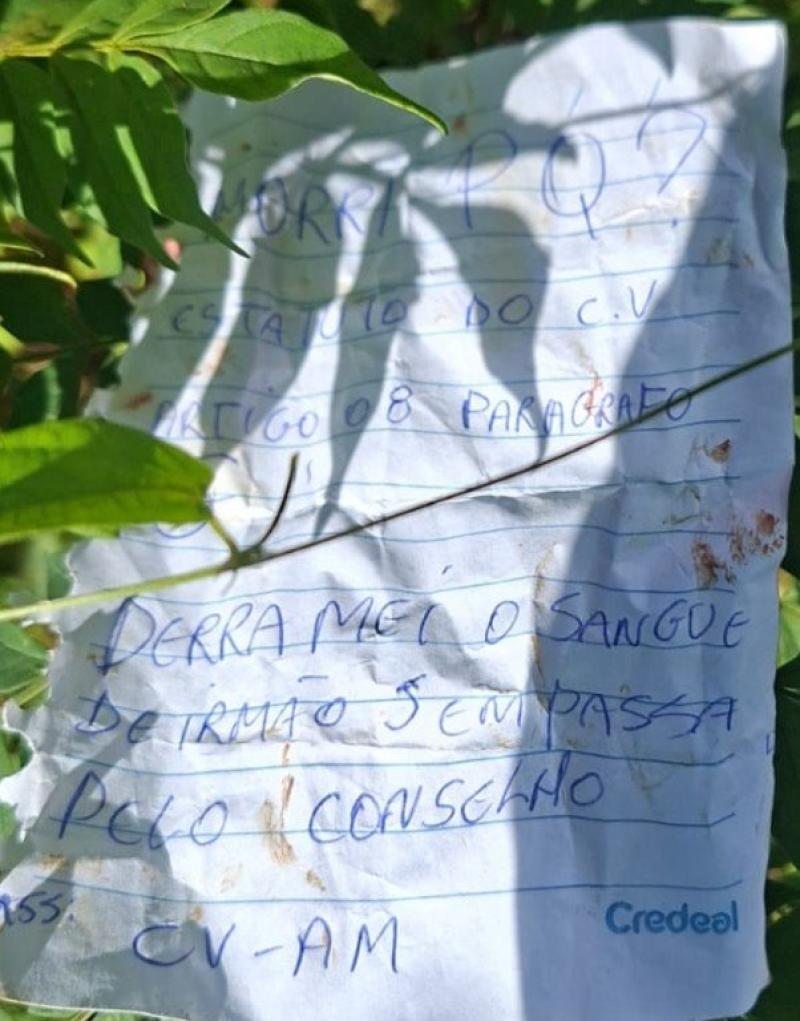 MORRI PQ?
ESTATUTO DO C.V
ARTIGO 08 PARAGRAFO
DERRAMEI O SANGUE
DE IRMÃO SEM PASSA
PELO CONSELHO
ASS:
CV-AM
Credeal